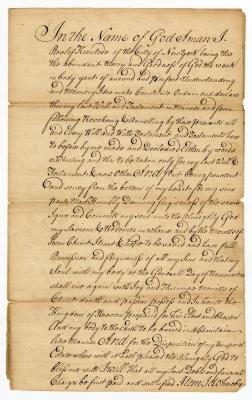 In the Name of God Aman I.
of the City of New York being thro
the abundant Mercy and Goodness of God tho weak
in body yet of a sound and perfect Understanding
and Memory Do make Constitute Ordain and declare
this my Last Will and Testament in manner and form
following Revoking & Cancelling by these presents all
and Every Will and Wills Testament and Testaments here
to before by me made and Declared Either by word or
Writing and this to be taken only for my last Will &
Testament & none Other And first being penitent
and sorry from the bottom of my heart for my sins
past Most Humbly Desiring forgiveness of the same
I give and Committ my soul unto the Almighty God
my Saviour & Redeemer in whom and by the Merits of
Jesus Christ I trust & believe to be saved and have full
Remission and forgiveness of all my Sins and that my
Soul with my body at the Generall Day of Resurrection
shall rise again with Joy and through the Merits of
Christs death and passion possess and Inherit the
Kingdom of Heaven prepared for his Elect and Chosen
And my body to the Earth to be buried in
like Manner And for the Disposition of my temporal
Estate which it hath pleased the Almighty God to
bless me with I will that all my Just Debts and funerall
Charges be first paid and satisfied Item I do hereby